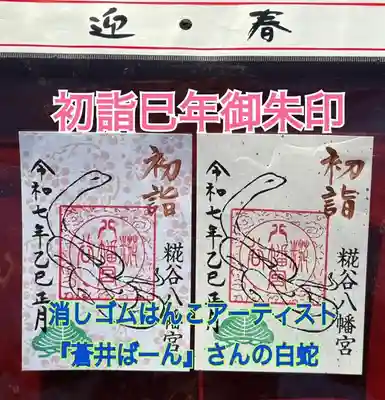 迎・春
初詣巳年御朱印
初詣
糀谷八幡宮
令和七年乙巳正月
初詣
糀谷八幡宮
令和七年乙巳正月
消しゴムはんこアーティスト
『蒼井ばーん』さんの白蛇